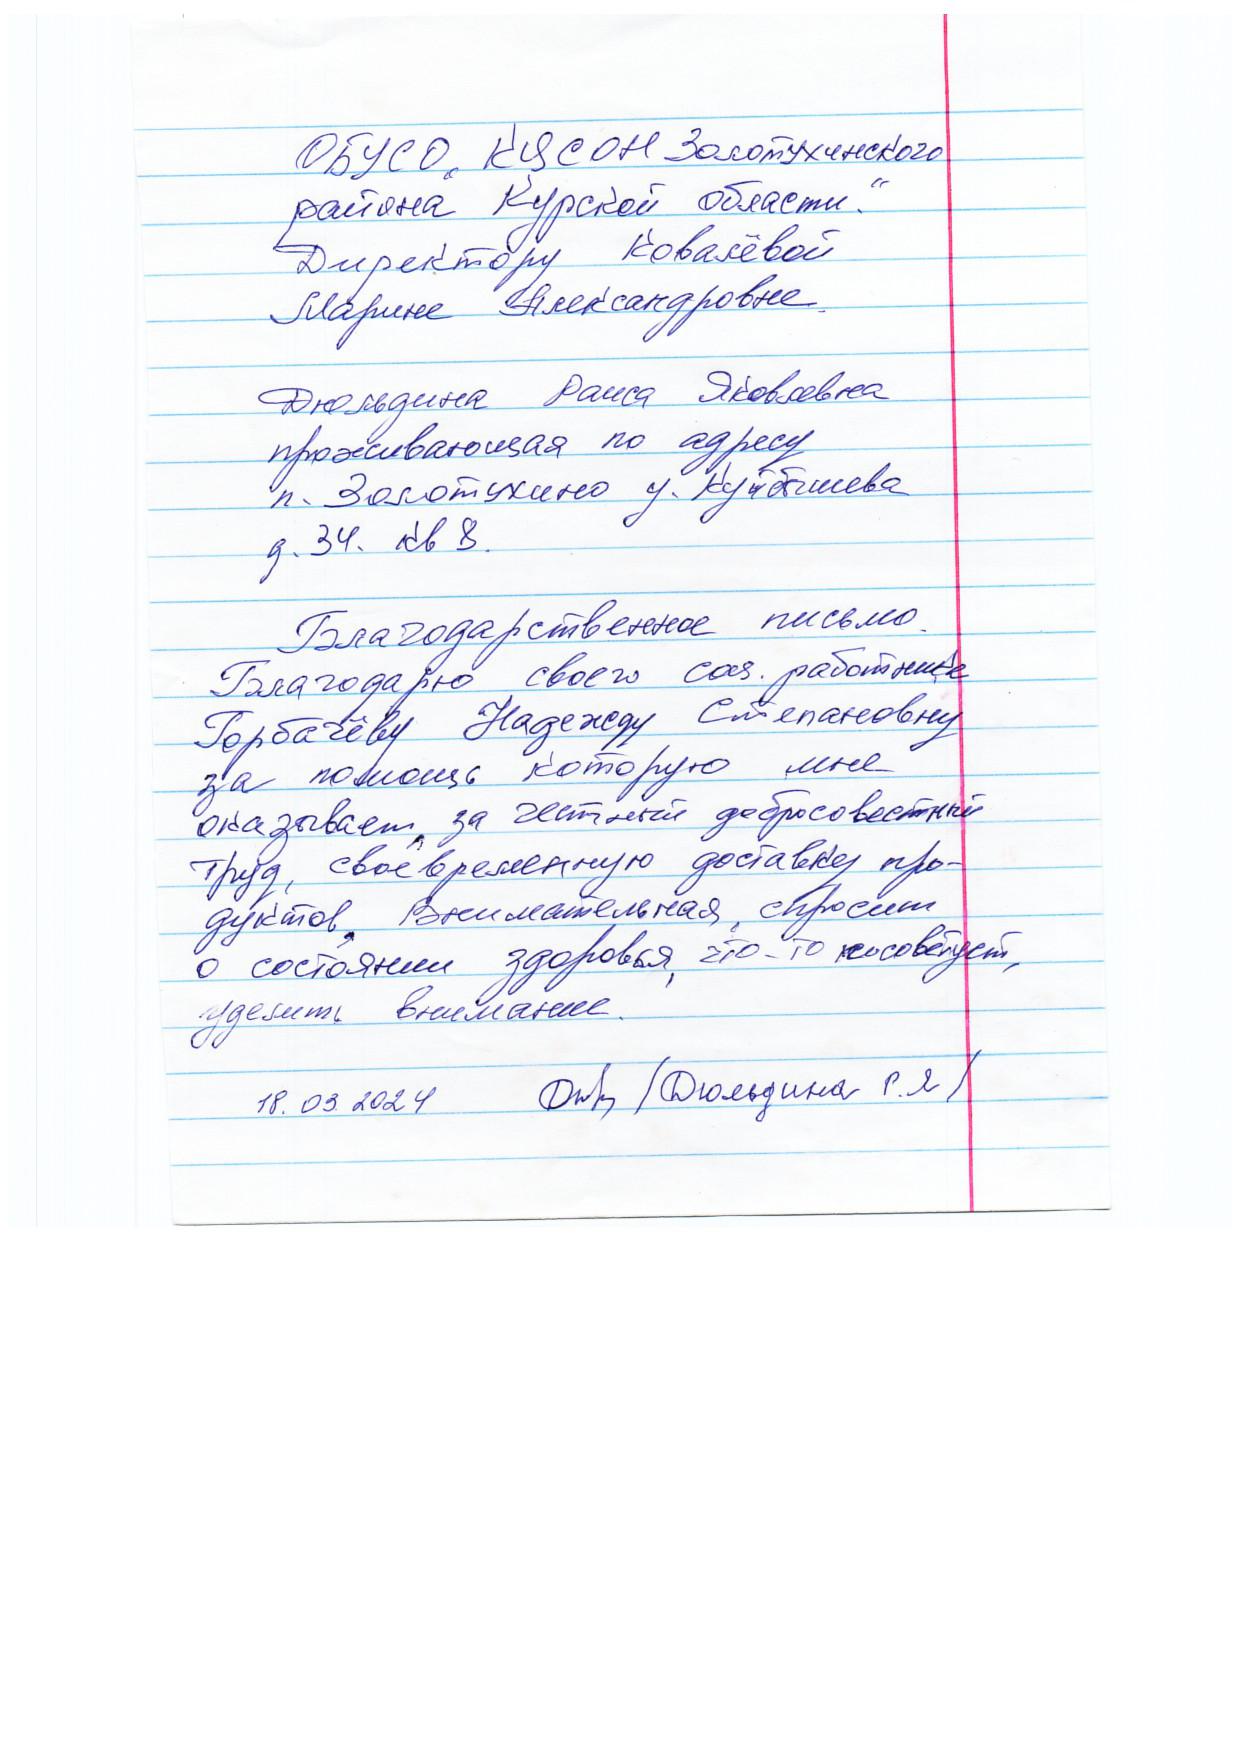 ОБУСО „КЦСОН Золотухинского
района Курской области“.
Директору Ковалёвой
Марине Александровне.
Дюльдина Раиса Яковлевна
проживающая по адресу
п. Золотухино у. Куйбышева
д. 34. кв 8.
Благодарственное письмо.
Благодарю своего соц. работника
Горбачёву Надежду Степановну
за помощь которую мне
оказывает, за честный добросовестный
труд, своевременную доставку про-
дуктов. Внимательная, спросит
о состоянии здоровья, что-то посоветует,
уделить внимание.
18.03.2024 /Дюльдина Р.Я/